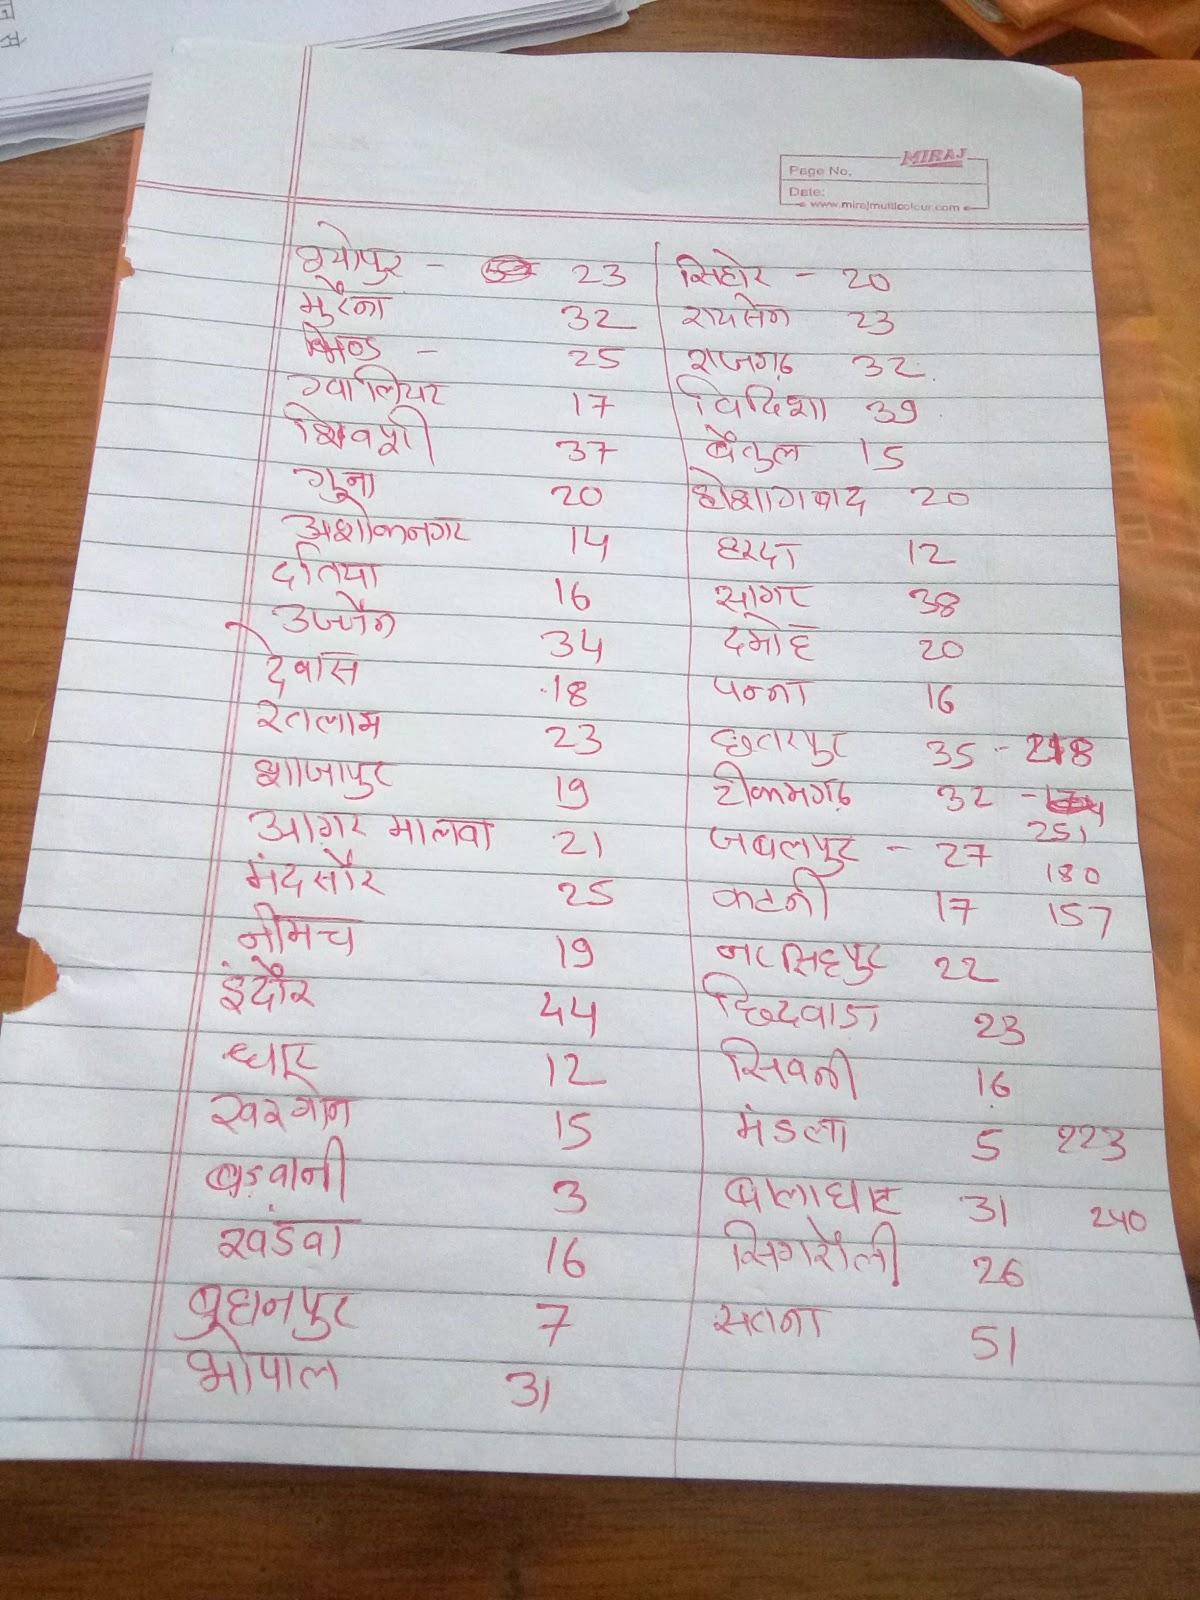 MIRAJ
Page No.
Date:
www.mirajmulticolour.com
श्योपुर - 23
मुरैना 32
भिण्ड - 25
ग्वालियर 17
शिवपुरी 37
गुना 20
अशोकनगर 14
दतिया 16
उज्जैन 34
देवास 18
रतलाम 23
शाजापुर 19
आगर मालवा 21
मंदसौर 25
नीमच 19
इंदौर 44
धार 12
खरगोन 15
बड़वानी 3
खंडवा 16
बुरहानपुर 7
भोपाल 31
सिहोर - 20
रायसेन 23
राजगढ़ 32
विदिशा 39
बैतुल 15
होशागबाद 20
हरदा 12
सागर 38
दमोह 20
पन्ना 16
छतरपुर 35 - 218
टीकमगढ़ 32 -
251
जबलपुर - 27
180
कटनी 17 157
नरसिहपुर 22
छिदवाडा 23
सिवनी 16
मंडला 5 223
बालाघाट 31 240
सिगरौली 26
सतना 51